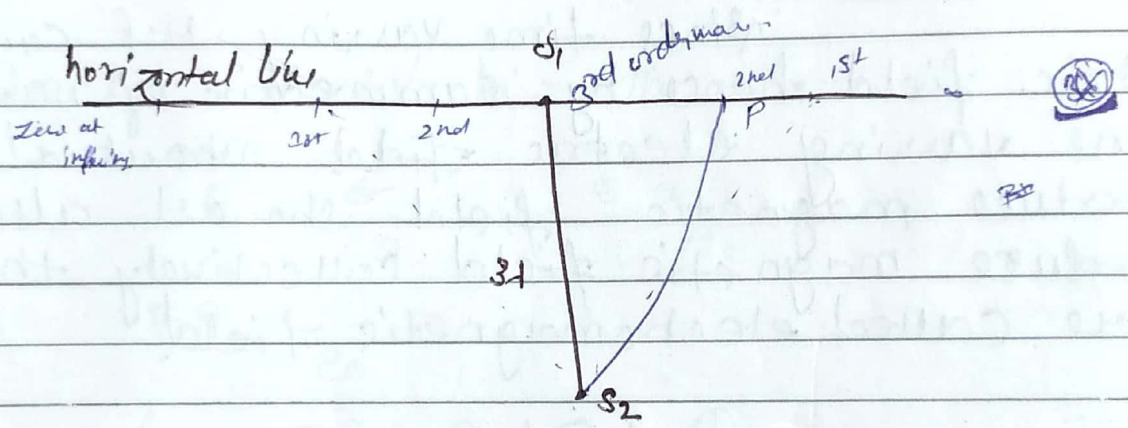 S1
horizontal line
3rd order max.
2nd
1st
∞
Zero at
infinity
1st
2nd
P
3λ
S2